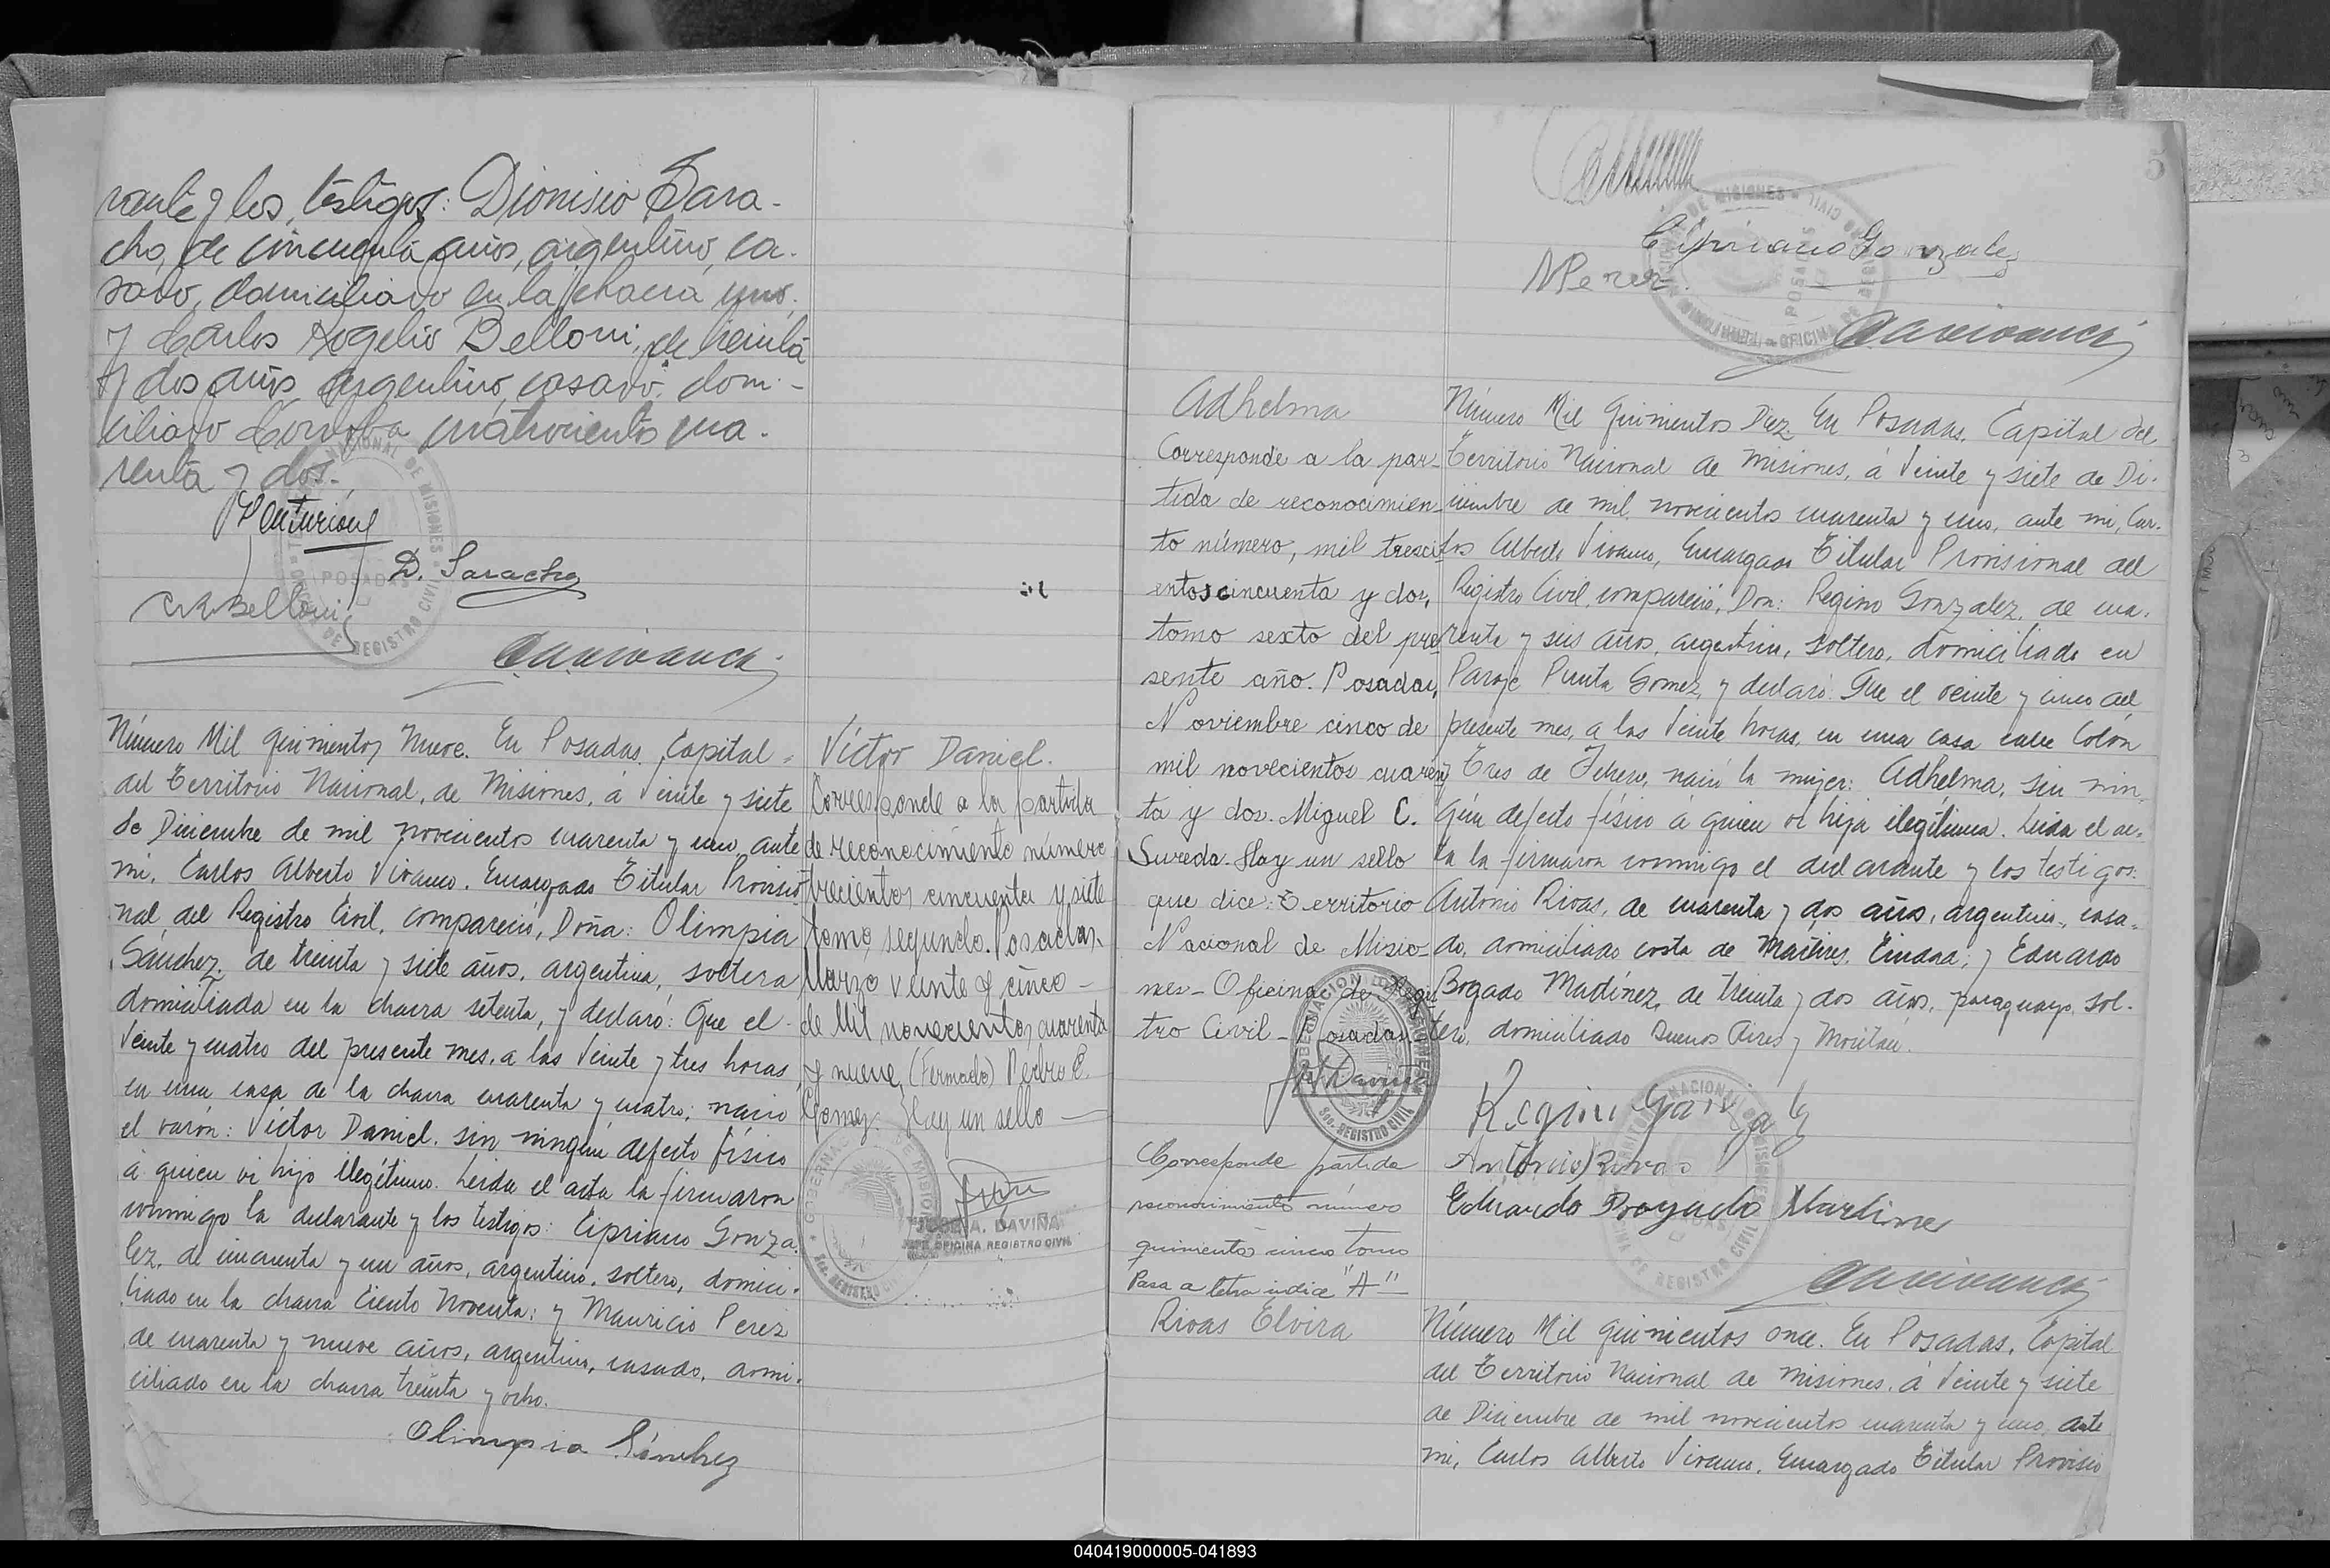 rante y los testigos: Dionisio Sara-
cho, de cincuenta años, argentino, ca-
sado, domiciliado en la chacra uno,
y Carlos Rogelio Belloni, de treinta
y dos años, argentino, casado, domi-
ciliado Cordoba cuatrocientos cua-
renta y dos.-
D. Saracho
C.R. Belloni
Número Mil quinientos Nueve. En Posadas, Capital
del Territorio Nacional, de Misiones, á Veinte y siete
de Diciembre de mil novecientos cuarenta y uno, ante
mi, Carlos Alberto Vivanco, Encargado Titular Provisio-
nal del Registro Civil, compareció, Doña: Olimpia
Sánchez, de treinta y siete años, argentina, soltera
domiciliada en la chacra setenta, y declaró: Que el
Veinte y cuatro del presente mes, a las Veinte y tres horas,
en una casa de la chacra cuarenta y cuatro; nació
el varón: Víctor Daniel, sin ningún defecto físico
á quien vi hijo ilegítimo. Leida el acta la firmaron
conmigo la declarante y los testigos: Cipriano Gonza-
lez, de cincuenta y un años, argentino, soltero, domici-
liado en la chacra Ciento Noventa; y Mauricio Perez
de cuarenta y nueve años, argentino, casado, domi-
ciliado en la chacra treinta y ocho.
Olimpia Sánchez
Víctor Daniel.
Corresponde a la partida
de reconocimiento número
trecientos cincuenta y siete
tomo segundo. Posadas,
Marzo veinte y cinco -
de Mil novecientos cuarenta
y nueve, (Firmado) Pedro E.
Gomez. Hay un sello -
JOSE A. DAVIÑA
JEFE OFICINA REGISTRO CIVIL
Cipriano Gonzalez
M Perez
Adhelma
Corresponde a la par-
tida de reconocimien-
to número, mil tresci-
entos cincuenta y dos,
tomo sexto del pre-
sente año. Posadas,
Noviembre cinco de
mil novecientos cuaren-
ta y dos. Miguel C.
Sureda. Hay un sello
que dice: Territorio
Nacional de Misio-
nes - Oficina de Regis-
tro Civil - Posadas
Daviña
Corresponde partida
reconocimiento número
quinientos cinco tomo
Pasa a letra indice "A"
Número Mil Quinientos Diez. En Posadas, Capital del
Territorio Nacional de Misiones, á Veinte y siete de Di-
ciembre de mil novecientos cuarenta y uno, ante mi, Car-
los Alberto Vivanco, Encargado Titular Provisional del
Registro Civil, compareció, Don: Regino Gonzalez, de cua-
renta y seis años, argentino, soltero, domiciliado en
Paraje Punta Gomez, y declaró: Que el veinte y cinco del
presente mes, a las Veinte horas, en una casa calle Colón
y Tres de Febrero, nació la mujer: Adhelma, sin nin-
gún defecto físico á quien vi hija ilegítima. Leida el ac-
ta la firmaron conmigo el declarante y los testigos:
Antonio Rivas, de cuarenta y dos años, argentino, casa-
do, domiciliado costa de Martires, Ciudad; y Eduardo
Bogado Martínez, de treinta y dos años, paraguayo, sol-
tero, domiciliado Buenos Aires y Moritan.
Regino Gonzalez
Antonio Rivas
Eduardo Bogado Martinez
Rivas Elvira
Número Mil Quinientos once. En Posadas, Capital
del Territorio Nacional de Misiones, á Veinte y siete
de Diciembre de mil novecientos cuarenta y uno, ante
mi, Carlos Alberto Vivanco, Encargado Titular Provisio
040419000005-041893